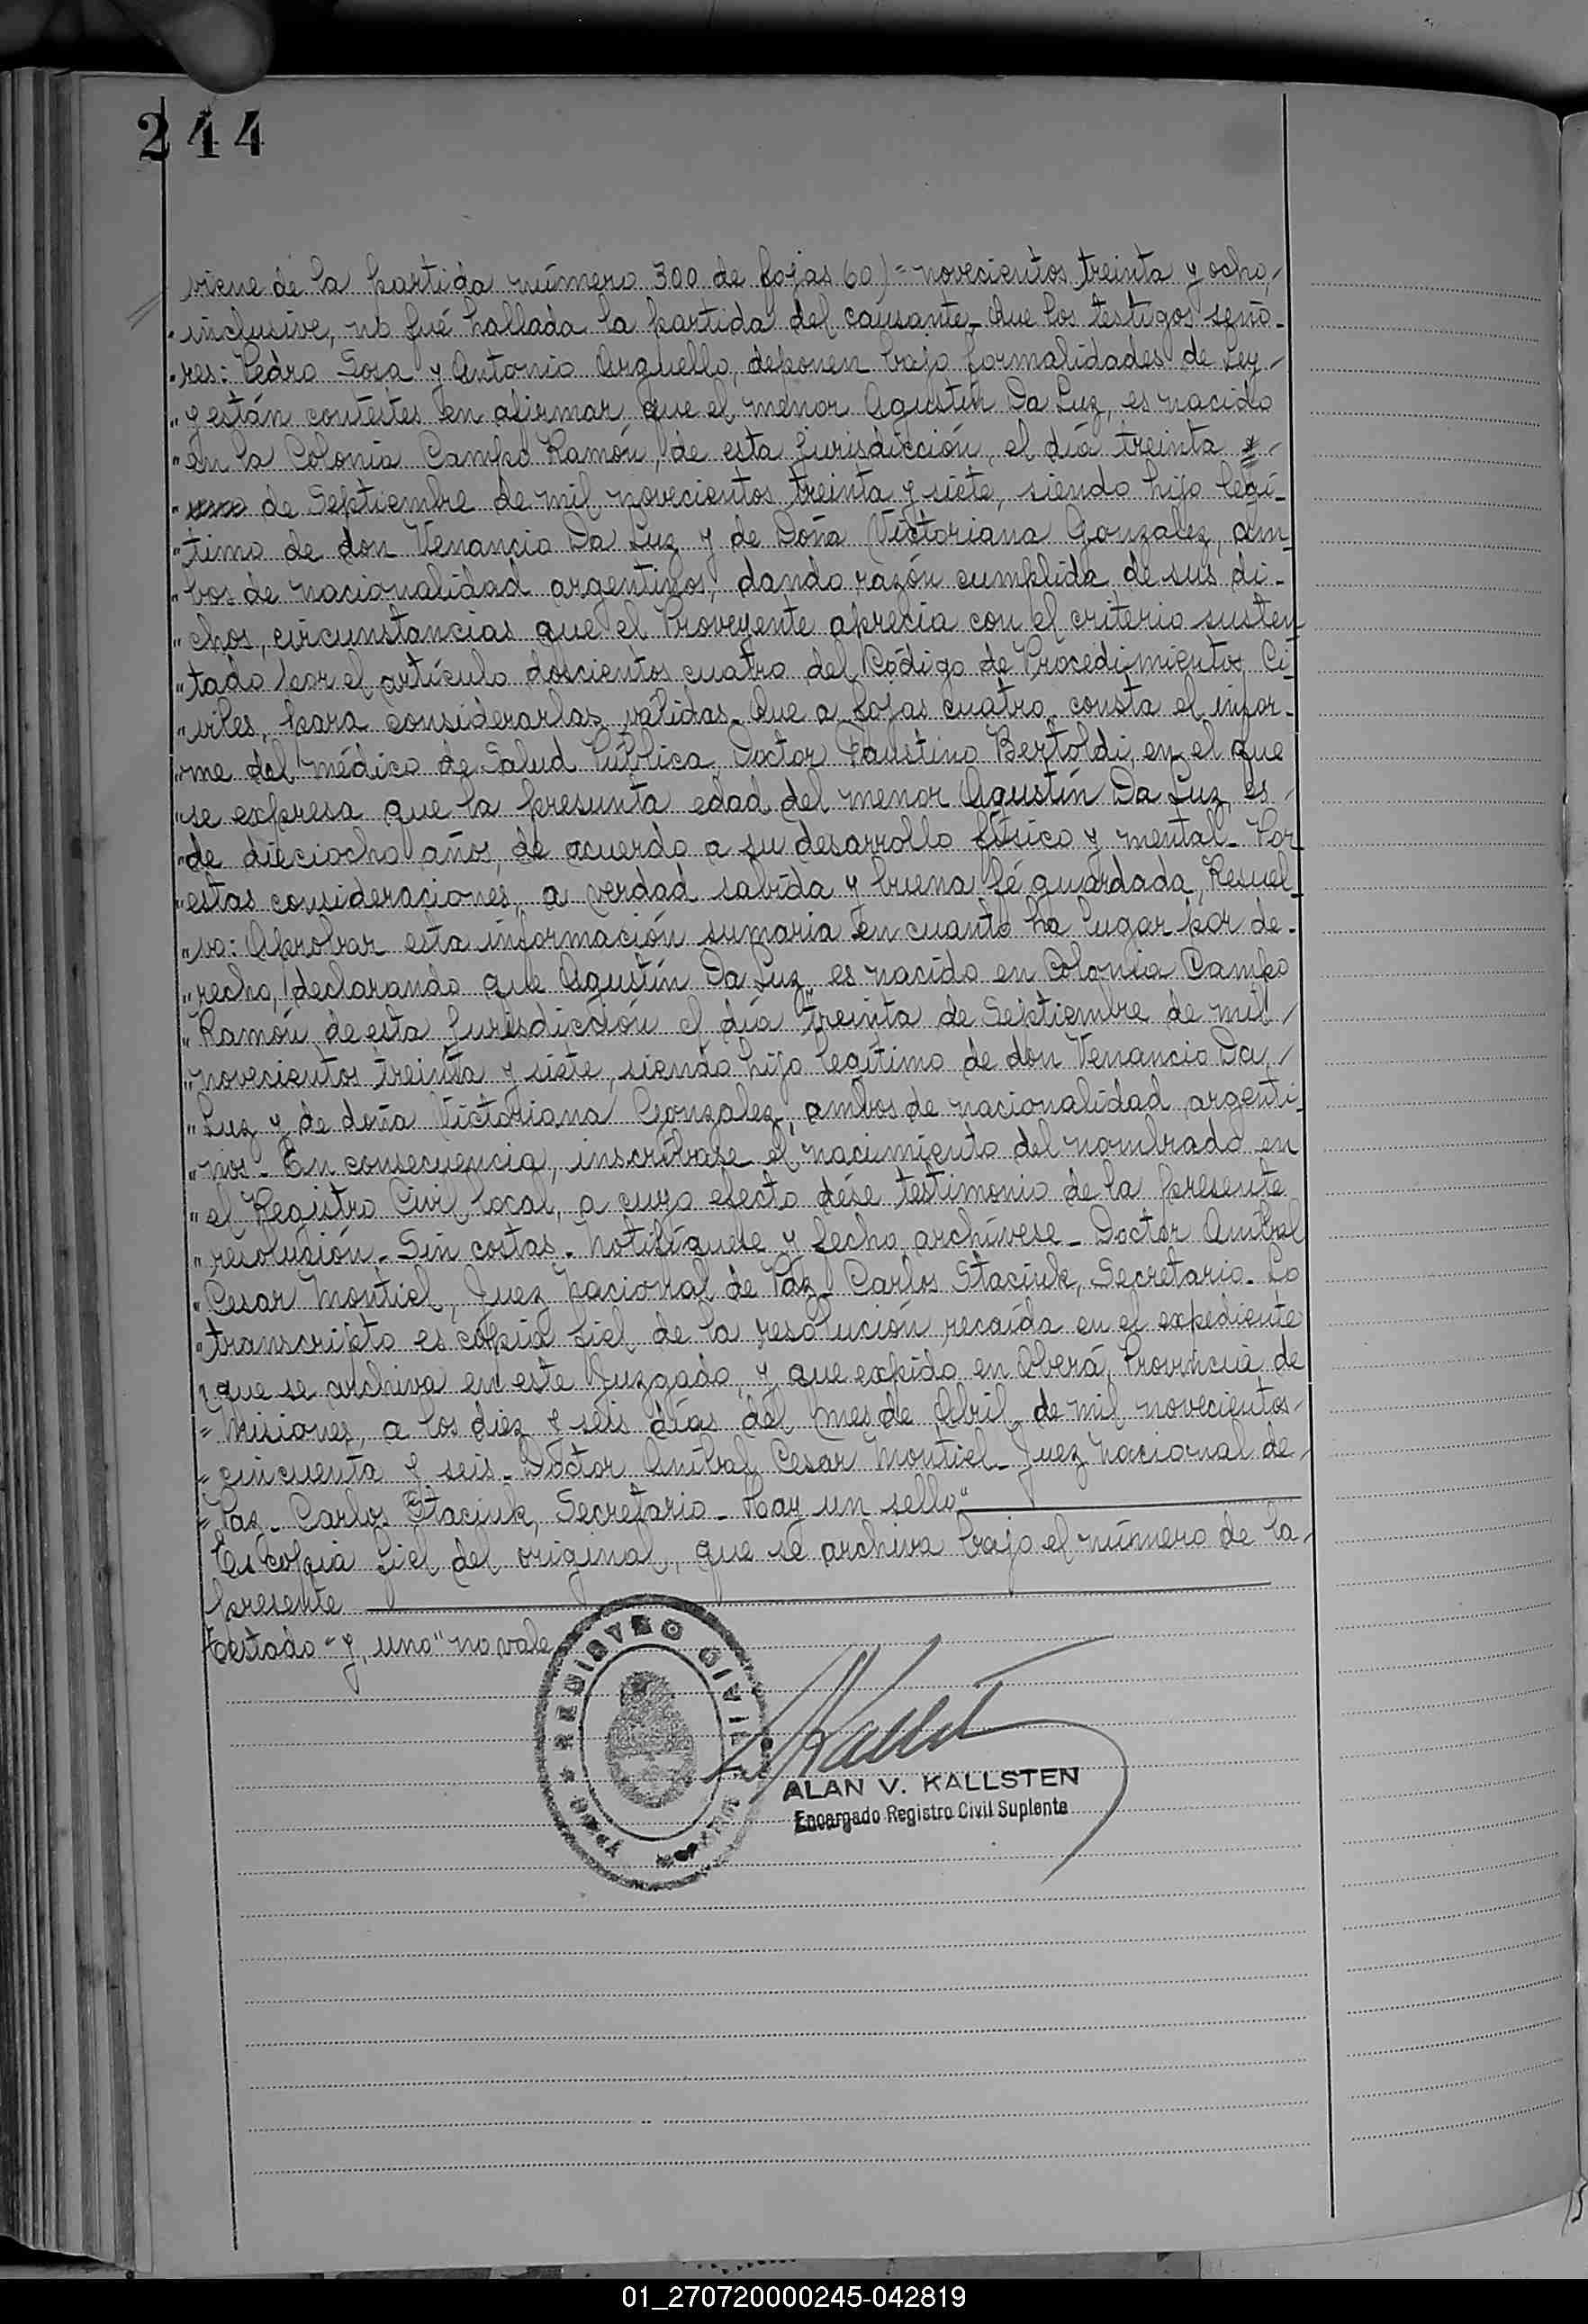 244
viene de la partida número 300 de fojas 60) = novecientos treinta y ocho,
inclusive, no fué hallada la partida del causante_ Que los testigos seño-
res: Pedro Sosa y Antonio Arguello, deponen bajo formalidades de Ley
" y están contestes en afirmar que el menor Agustín Da Luz, es nacido
" en la Colonia Campo Ramón, de esta jurisdicción, el día treinta y
" uno de Septiembre de mil novecientos treinta y siete, siendo hijo legí-
" timo de don Venancio Da Luz y de Doña Victoriana Gonzalez, am-
" bos de nacionalidad argentinos, dando razón cumplida de sus di-
" chos, circunstancias que el Proveyente aprecia con el criterio susten
" tado por el artículo doscientos cuatro del Código de Procedimientos Ci-
" viles, para considerarlas válidas_ Que a fojas cuatro, consta el infor-
" me del médico de Salud Pública, Doctor Faustino Bertoldi, en el que
" se expresa que la presunta edad del menor Agustín Da Luz, es
" de dieciocho años, de acuerdo a su desarrollo físico y mental_ Por
" estas consideraciones, a verdad sabida y buena fé guardada, Resuel-
" vo: Aprobar esta información sumaria en cuanto ha lugar por de-
" recho, declarando que Agustín Da Luz, es nacido en Colonia Campo
" Ramón de esta jurisdicción el día treinta de Septiembre de mil
" novecientos treinta y siete, siendo hijo legítimo de don Venancio Da
" Luz y de doña Victoriana Gonzalez, ambos de nacionalidad argenti-
" nos_ En consecuencia, inscríbase el nacimiento del nombrado en
" el Registro Civil local, a cuyo efecto dése testimonio de la presente
" resolución_ Sin costas_ Notifíquese y fecho archívese_ Doctor Anibal
" Cesar Montiel, Juez Nacional de Paz_ Carlos Staciuk, Secretario_ Lo
" transcripto es copia fiel de la resolución recaída en el expediente
" que se archiva en este Juzgado, y que expido en Oberá, Provincia de
" Misiones, a los diez y seis días del mes de Abril de mil novecientos
" cincuenta y seis_ Doctor Anibal Cesar Montiel_ Juez Nacional de
" Paz_ Carlos Staciuk, Secretario_ Hay un sello"
Es copia fiel del original, que se archiva bajo el número de la
presente
Testado "y, uno" no vale
REGISTRO CIVIL
ALAN V. KALLSTEN
Encargado Registro Civil Suplente
01_270720000245-042819